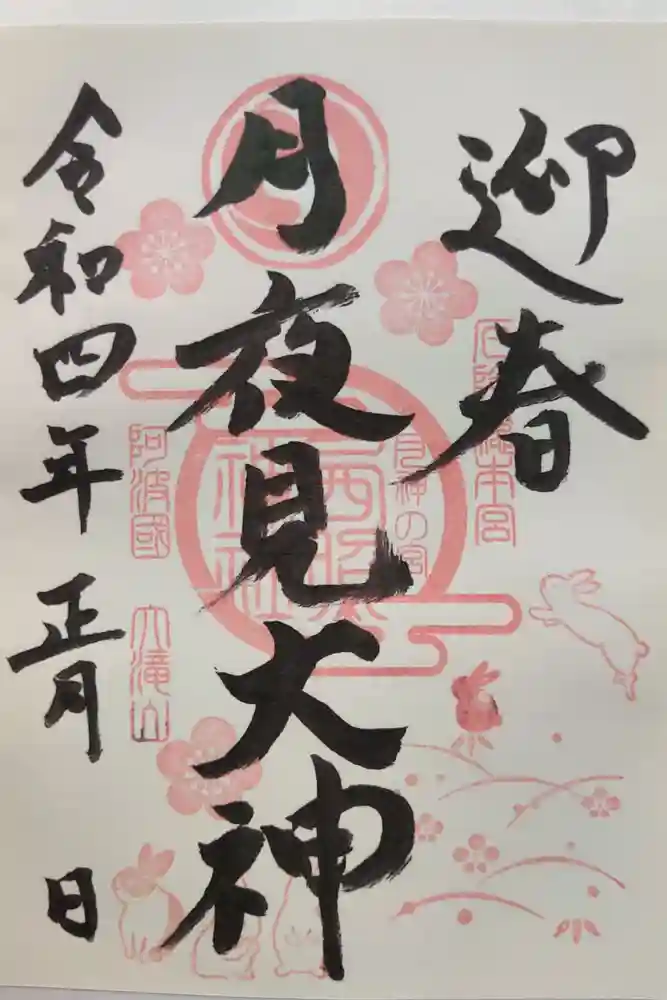 迎春
厄除總本宮
月夜見大神
月神の宮
西照神社
阿波國 大滝山
令和四年 正月 日